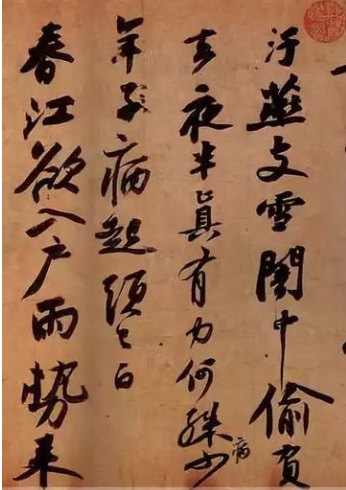 汙燕支雪闇中偷負
去夜半眞有力何殊少病
年子病起頭已白
春江欲入戶雨勢來